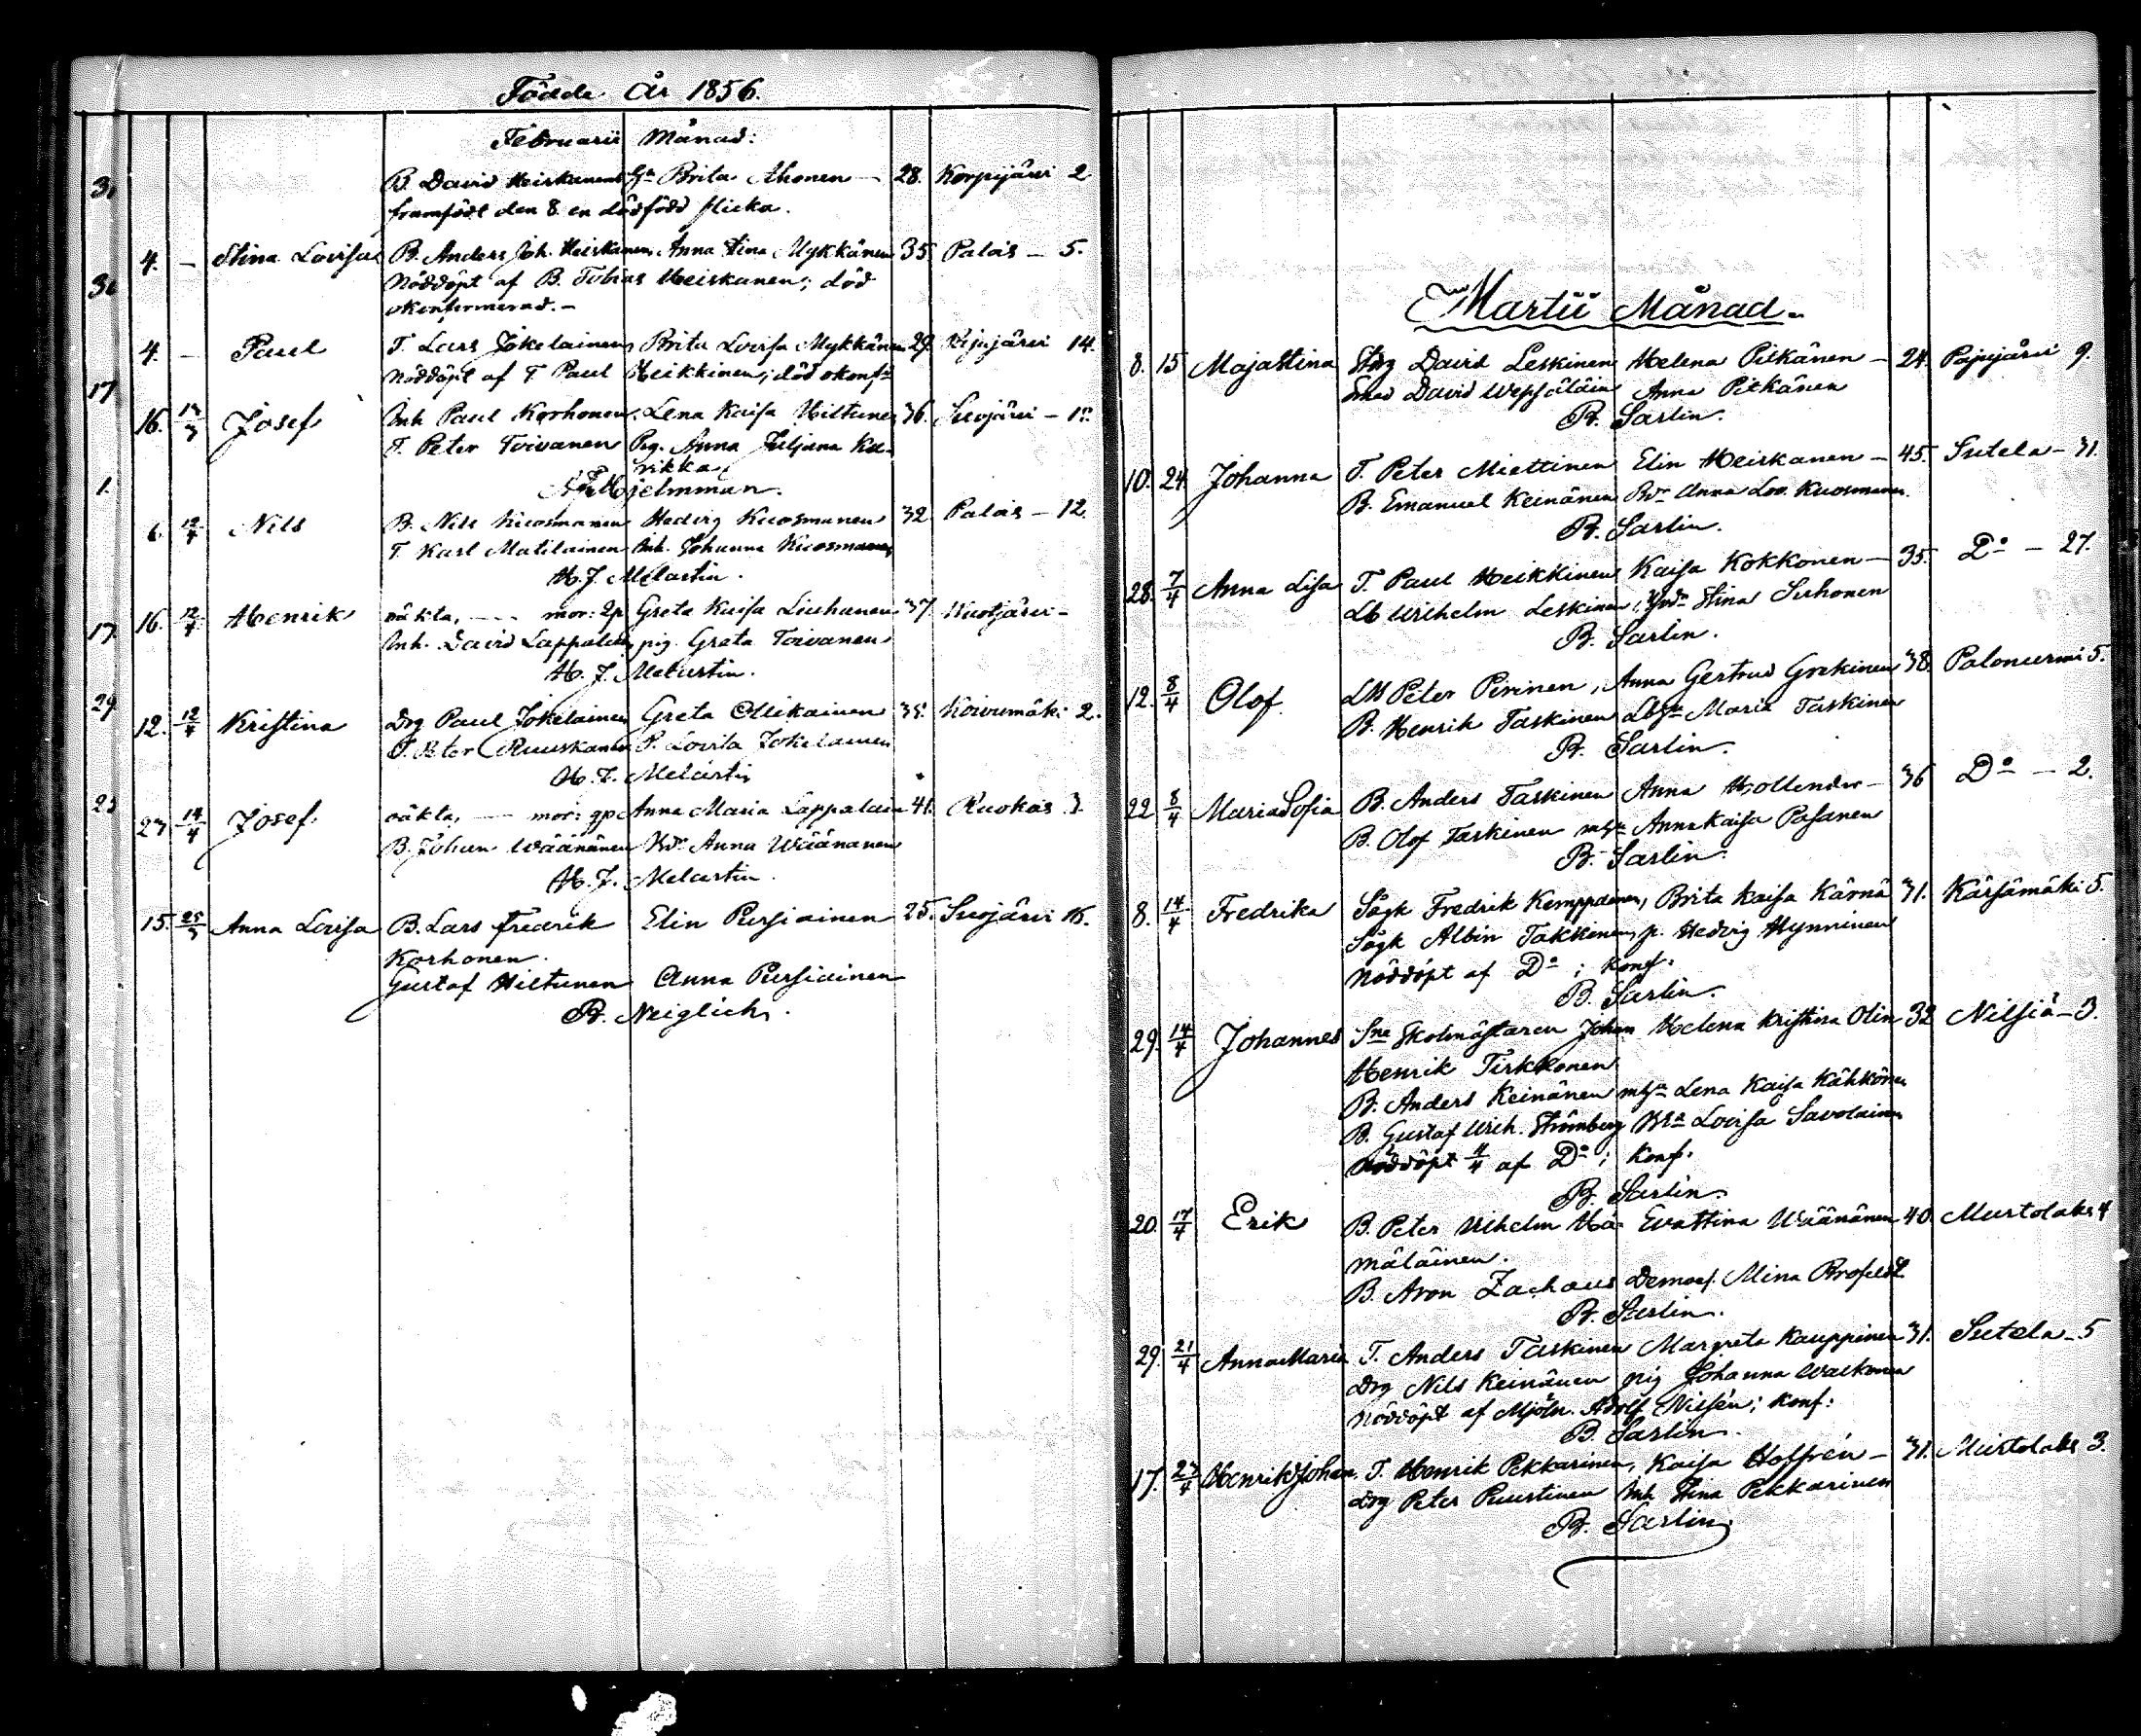 Födde År 1856.
Februarii Månad:
31 B. David Heiskanens H:a Brita Ahonen – 28. Korpijärvi 2
framfödt den 8 en dödfödd flicka.
4. – Stina Lovisa B. Anders Joh. Heiskanen, Anna Stina Mykkänen 35 Palois – 5.
Nöddöpt af B. Tobias Heiskanen; död
okonfirmerad. –
4. – Paul T. Lars Jokelainen, Brita Lovisa Mykkänen 29. 14.
Nöddöpt af T Paul Heikkinen; död okonf:
17
16. Josef Inh Paul Korhonen, Lena Kaisa Hiltunen 36. Suojärvi –
T. Peter Toivanen Pig. Anna Juljana Ku-
rikka
Hjelmman.
1.
6. 12/4 Nils B. Nils Kuosmanen Hedvig Kuosmanen 32 Palois – 12.
T. Karl Matilainen Inh. Johanna Kuosmanen
H. J. Melartin.
17. 16. 12/4 Henrik oäkta, – mor: Greta Kaisa Liuhanen 37.
Inh. David Lappalain pig. Greta Toivanen
H. J. Melartin.
29
12. 12/4 Kristina Drg Paul Jokelainen Greta Ollikainen Koivumäki 2.
T. Peter Ruuskanen P. Lovisa Jokelainen
H. J. Melartin
14/4 Josef. oäkta, – mor: Anna Maria Lappalain 41. Ruokois 3.
B. Johan Wäänänen Anna Wäänanen
H. J. Melartin.
15. 25/3 Anna Lovisa B. Lars Fredrik Elin Pursiainen 25. Suojärvi 15.
Korhonen.
Gustaf Hiltunen Anna Pursiainen
B. Neiglick.
Martii Månad.
8. 15 Maja Stina Drg David Leskinen Helena Pitkänen – 24. Pajujärvi 9.
Smed David Wepsäläin Anna Pitkänen
B. Sarlin.
10. 24. Johanna T. Peter Miettinen Elin Heiskanen – 45. Sutela – 31.
B. Emanuel Keinänen Anna Lov. Kuosmanen.
B. Sarlin.
28. 7/4 Anna Lisa T. Paul Heikkinen Kaisa Kokkonen – 35. D:o – 27.
Lb Wilhelm Leskinen, Stina Suhonen
B. Sarlin.
12. 8/4 Olof. Peter Pirinen, Anna Gertrud Grekinen 38 Palonurmi 5.
B. Henrik Taskinen Maria Taskinen
B. Sarlin.
22 8/4 Maria Sofia B. Anders Taskinen Anna Hollender – 36 D:o – 2.
B. Olof Taskinen Anna Kaisa Pasanen
B. Sarlin.
8. 14/4 Fredrika Sågk Fredrik Kemppainen, Brita Kaisa Kärnä 31. Kärsämäki 5.
Sågk Albin Takkinen, p. Hedvig Hynninen
Nöddöpt af D:o; Konf:
B. Sarlin.
29. 14/4 Johannes Skolmästaren Johan Helena Kristina Olin 32 Nilsiä – 3.
Henrik Tirkkonen
B. Anders Keinänen Lena Kaisa Kähkönen
B. Gustaf Wilh. Strömberg Lovisa Savolainen
Nöddöpt 4/4 af D:o; Konf.
B. Sarlin.
20. 17/4 Erik B. Peter Vilhelm Hä- Eva Stina Wäänänen 40. Murtolaks 4
mäläinen.
B. Aron Zachaus Demois. Mina Brofeldt
B. Sarlin.
29. 21/4 Anna Maria T. Anders Taskinen Margreta Kauppinen 31. Sutela – 5
Drg Nils Keinänen pig Johanna Walkonen
Nöddöpt af Mjöln. Adolf Nissén; Konf:
B. Sarlin.
17. 27/4 Henrik Johan T. Henrik Pekkarinen, Kaisa Hoffrén – 31. Murtolaks 3.
Drg Peter Puustinen Inh Stina Pekkarinen
B. Sarlin